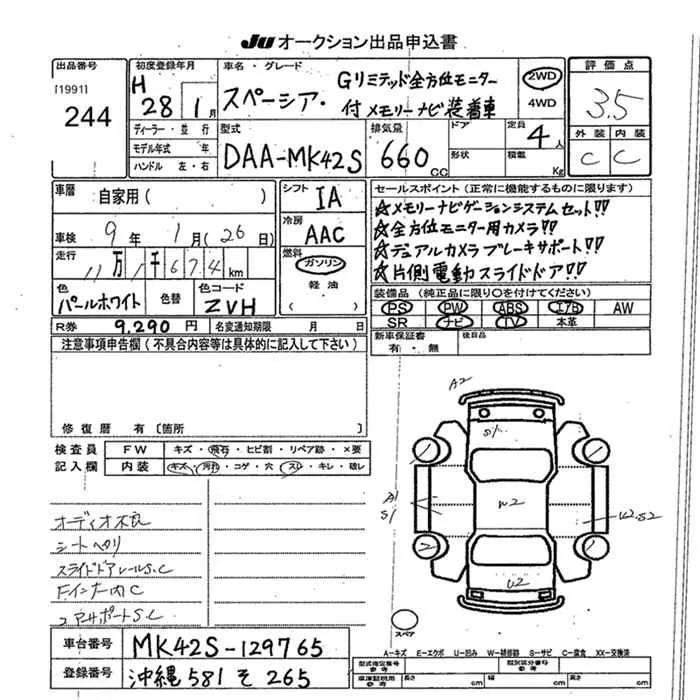 JU オークション出品申込書
出品番号
[1991]
244
初度登録年月
H
28 1月
ディーラー・並行
モデル年式 年
ハンドル 左・右
車名・グレード
スペーシア・
Gリミテッド全方位モニター
付メモリーナビ装着車
2WD
4WD
評価点
3.5
外装 内装
C C
型式
DAA-MK42S
排気量
660CC
ドア
形状
定員
4人
積載
Kg
車歴
自家用( )
車検 9年 1月(26日)
走行
11万1千674km
色
パールホワイト
色替
色コード
ZVH
シフト
IA
冷房
AAC
燃料
ガソリン
軽油
( )
セールスポイント(正常に機能するものに限ります)
☆メモリーナビゲーションシステムセット!!
☆全方位モニター用カメラ!!
☆デュアルカメラブレーキサポート!!
☆片側電動スライドドア!!
装備品 (純正品に限り○を付けてください)
PS PW ABS エアB AW
SR ナビ TV 本革
R券 9,290円 名変通知期限 月 日
新車保証書
有・無
後日品
注意事項申告欄(不具合内容等は具体的に記入して下さい)
修復歴 有〔箇所 〕
検査員
記入欄
FW キズ・飛石・ヒビ割・リペア跡・×要
内装 キズ・汚れ・コゲ・穴・スレ・キレ・破レ
オーディオ不良
シートヘタリ
スライドドアレールS.C
Fインナー内C
コアサポートS.C
A2
S1
A1
S1
W2
U2.S2
U2
スペア
車台番号 MK42S-129765
登録番号 沖縄581そ265
A−キズ E−エクボ U−凹み W−補修跡 S−サビ C−腐食 XX−交換済
型式指定番号
参考
類別区分番号
参考
車庫証明用
参考
長さ cm 幅 cm 高さ cm